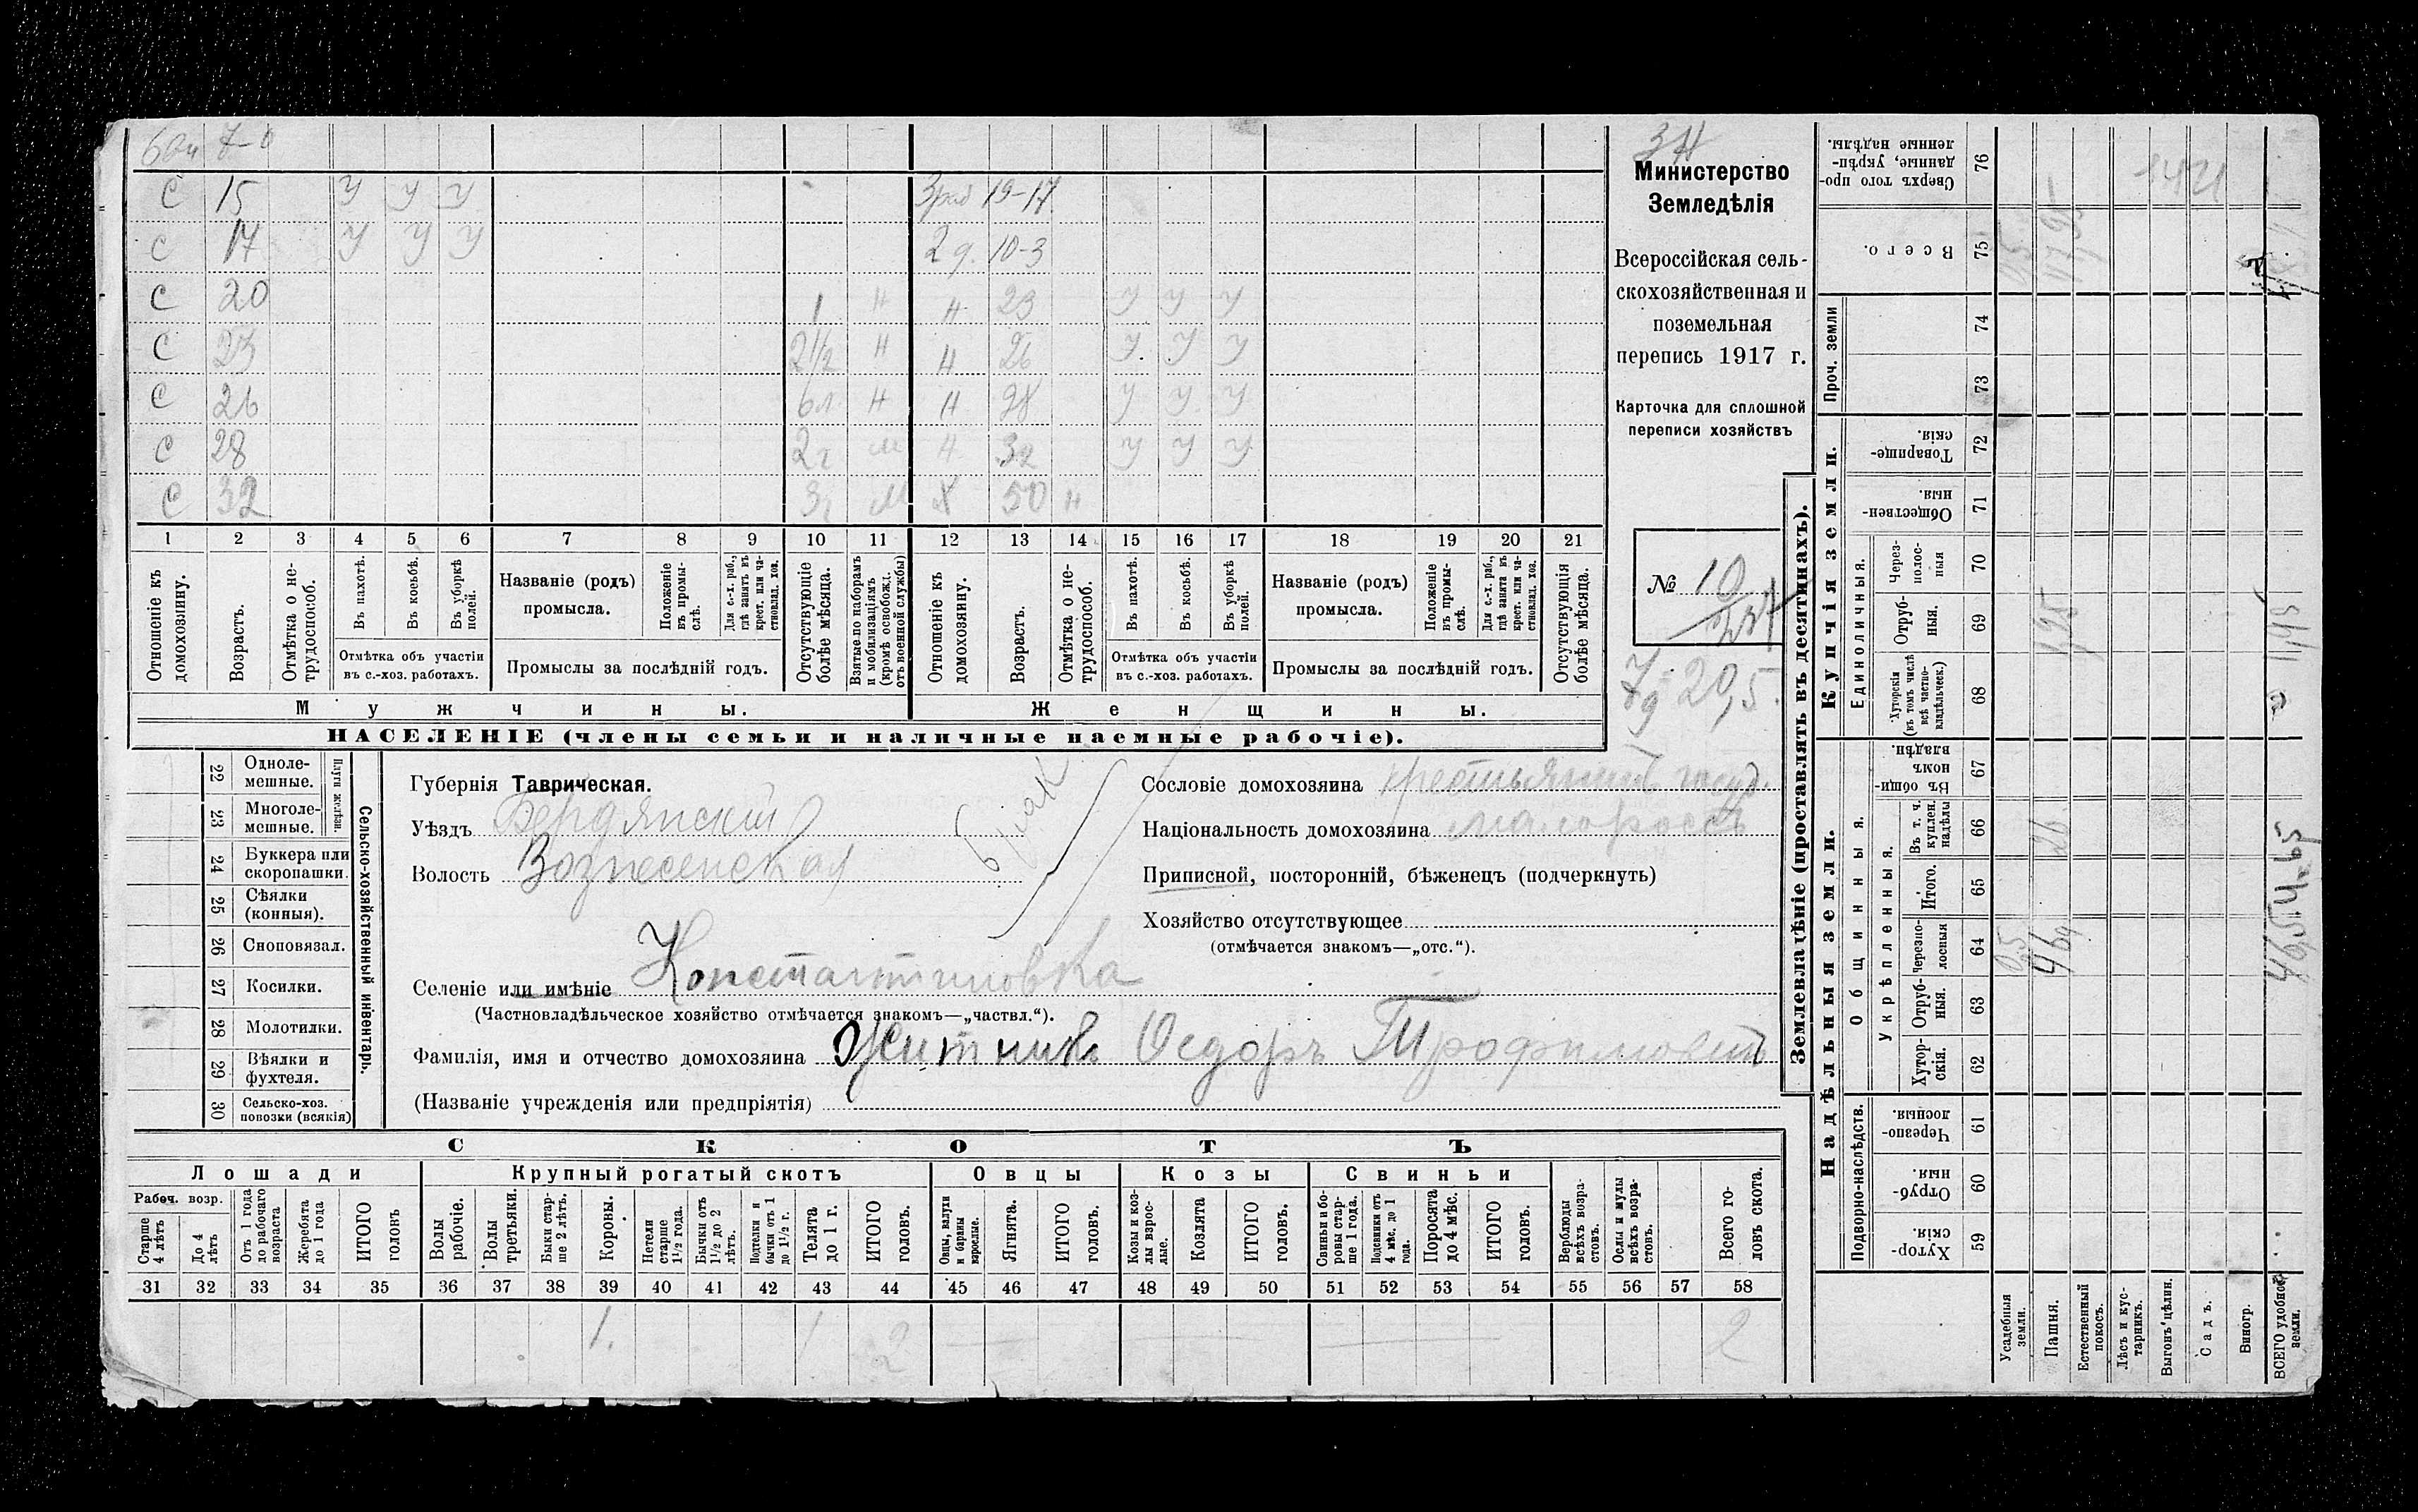 60и 7-0
С 15 У У У 3раб 19-17
С 17 У У У 2 д. 10-3
С 20 1 Н Н 23 У У У
С 23 2½ Н Н 26 У У У
С 26 6л Н Н 28 У У У
С 28 2г М Н 32 У У У
С 32 3г М Х 50 н
1 2 3 4 5 6 7 8 9 10 11 12 13 14 15 16 17 18 19 20 21
Отношеніе къ домохозяину.
Возрастъ.
Отмѣтка о не-трудоспособ.
Въ пахотѣ.
Въ косьбѣ.
Въ уборкѣ полей.
Отмѣтка объ участіи въ с.-хоз. работахъ.
Названіе (родъ) промысла.
Положеніе въ промы-слѣ.
Для с.-х. раб., гдѣ занятъ въ крест. или ча-стновлад. хоз.
Промыслы за послѣдній годъ.
Отсутствующіе болѣе мѣсяца.
Взятые по наборамъ и мобилизаціямъ (кромѣ освобожд. отъ военной службы)
Отношеніе къ домохозяину.
Возрастъ.
Отмѣтка о не-трудоспособ.
Въ пахотѣ.
Въ косьбѣ.
Въ уборкѣ полей.
Отмѣтка объ участіи въ с.-хоз. работахъ.
Названіе (родъ) промысла.
Положеніе въ промы-слѣ.
Для с.-х. раб., гдѣ занята въ крест. или ча-стновлад. хоз.
Промыслы за послѣдній годъ.
Отсутствующія болѣе мѣсяца.
Мужчины.
Женщины.
НАСЕЛЕНІЕ (члены семьи и наличные наемные рабочіе).
Министерство
Земледѣлія
Всероссійская сель-
скохозяйственная и
поземельная
перепись 1917 г.
Карточка для сплошной
переписи хозяйствъ
№ 10
227
7д 20,5.
22 Одноле-мешные.
23 Многоле-мешные.
Плуги желѣзн.
24 Буккера или скоропашки.
25 Сѣялки (конныя).
26 Сноповязал.
27 Косилки.
28 Молотилки.
29 Вѣялки и фухтеля.
30 Сельско-хоз. повозки (всякія)
Сельско-хозяйственный инвентарь.
Губернія Таврическая.
Уѣздъ Бердянскій
Волость Вознесенская
Селеніе или имѣніе Константиновка
(Частновладѣльческое хозяйство отмѣчается знакомъ—„частвл.“).
Фамилія, имя и отчество домохозяина Житникъ Федоръ Трофимовичъ
(Названіе учрежденія или предпріятія)
Сословіе домохозяина крестьянинъ госуд.
Національность домохозяина малороссъ
Приписной, посторонній, бѣженецъ (подчеркнуть)
Хозяйство отсутствующее
(отмѣчается знакомъ—„отс.“).
СКОТЪ
Лошади
Крупный рогатый скотъ
Овцы
Козы
Свиньи
Рабоч. возр.
Старше 4 лѣтъ
До 4 лѣтъ
Отъ 1 года до рабочаго возраста
Жеребята до 1 года
ИТОГО головъ
Волы рабочіе.
Волы третьяки.
Быки стар-ше 2 лѣтъ.
Коровы.
Нетели старше 1½ года.
Бычки отъ 1½ до 2 лѣтъ.
Подтелки и бычки отъ 1 до 1½ г.
Телята до 1 г.
ИТОГО головъ.
Овцы, валухи и бараны взрослые.
Ягнята.
ИТОГО головъ.
Козы и коз-лы взрос-лые.
Козлята
ИТОГО головъ.
Свиньи и бо-ровы стар-ше 1 года.
Подсвинки отъ 4 мѣс. до 1 года.
Поросята до 4 мѣс.
ИТОГО головъ.
Верблюды всѣхъ возра-стовъ.
Ослы и мулы всѣхъ возра-стовъ.
Всего го-ловъ скота.
31 32 33 34 35 36 37 38 39 40 41 42 43 44 45 46 47 48 49 50 51 52 53 54 55 56 57 58
1. 1 2 — — — 2
Землевладѣніе (проставлять въ десятинахъ).
Сверхъ того про-данные, укрѣп-ленные надѣлы. 76
Всего. 75
Проч. земли 74 73
Купчія земли.
Товарище-скія. 72
Обществен-ныя. 71
Единоличныя.
Через-полос-ныя 70
Отруб-ныя. 69
Хуторскія (въ томъ числѣ всѣ частно-владѣльческ.) 68
Надѣльныя земли.
Общинныя.
Въ общи-номъ владѣн. 67
Укрѣпленныя.
Въ т. ч. куплен. надѣлы 66
Итого. 65
Черезпо-лосныя 64
Отруб-ныя. 63
Хутор-скія. 62
Подворно-наслѣдств.
Черезпо-лосныя. 61
Отруб-ныя. 60
Хутор-скія. 59
Усадебныя земли.
Пашня.
Естественный покосъ.
Лѣсъ и кус-тарникъ.
Выгонъ цѣлин.
Садъ.
Виногр.
ВСЕГО удобной земли.